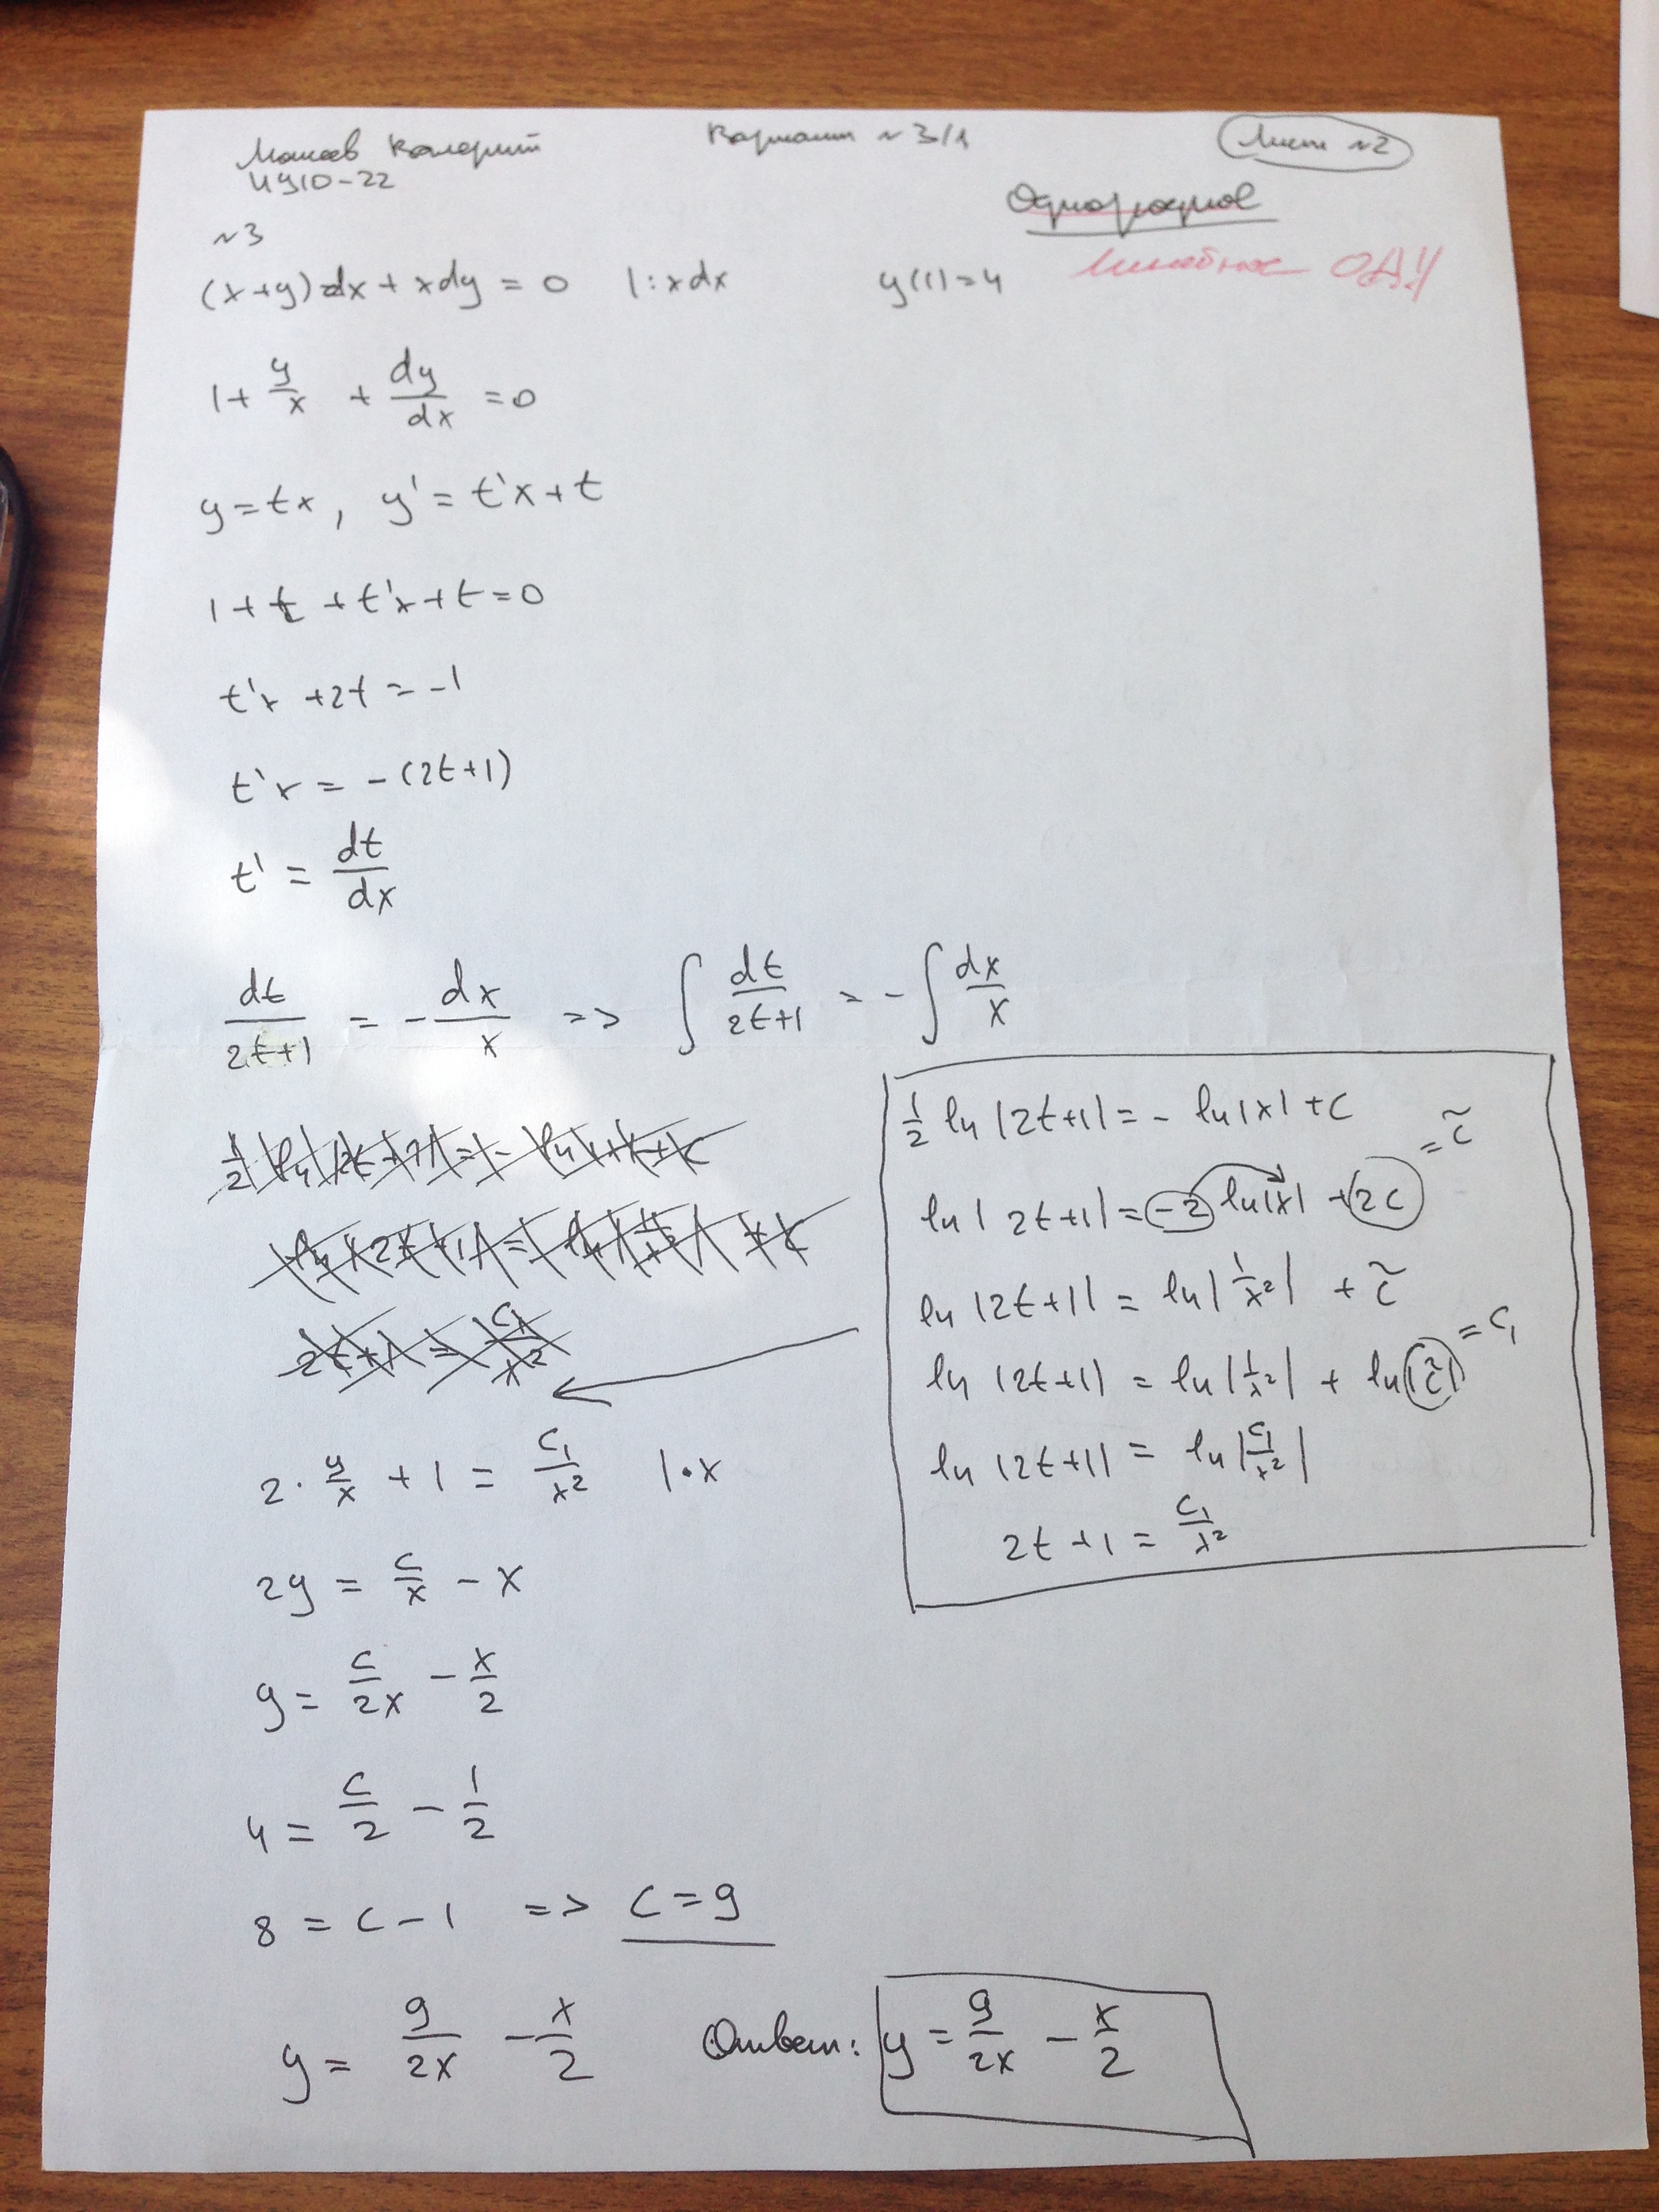 Вариант №3/1
Лист №2
ИУ10-22
Однородное
№3
линейное ОДУ
(x+y)dx + xdy = 0 |:xdx y(1)=4
1 + y/x + dy/dx = 0
y = tx, y' = t'x + t
1 + t + t'x + t = 0
t'x + 2t = -1
t'x = -(2t+1)
t' = dt/dx
dt/(2t+1) = - dx/x => ∫ dt/(2t+1) = - ∫ dx/x
1/2 ln|2t+1| = - ln|x| + C
ln|2t+1| = -2 ln|x| + 2C = C̃
ln|2t+1| = ln|1/x²| + C̃
ln|2t+1| = ln|1/x²| + ln|C̃| = C₁
ln|2t+1| = ln|C₁/x²|
2t+1 = C₁/x²
2t+1 = C₁/x²
2 · y/x + 1 = C₁/x² |·x
2y = C/x - x
y = C/2x - x/2
4 = C/2 - 1/2
8 = C - 1 => C = 9
y = 9/2x - x/2 Ответ: y = 9/2x - x/2